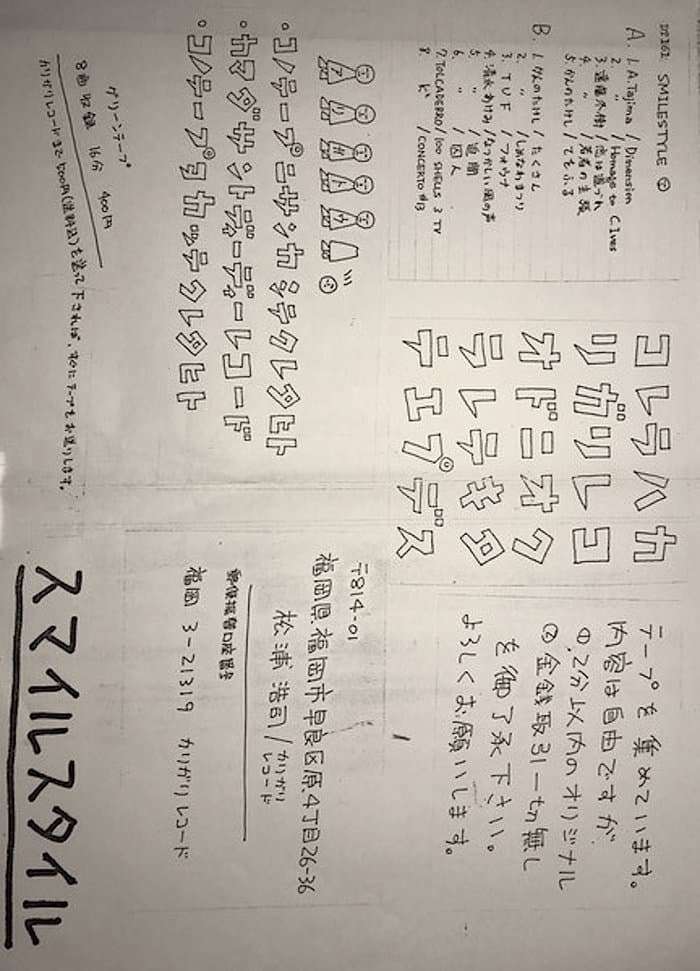 DT161: SMILESTYLE
A. 1. A. Tajima / Dimension
2. 〃 / Homage to C. Ives
3. 遠藤冬樹 / 恋は道づれ
4. 〃 / 若者の主張
5. かんのたけし / てもふる
B. 1. かんのたけし / たくさん
2. 〃 / しめなわまつり
3. TUF / フォウナ
4. 清水あけみ / なつかしい国の声
5. 〃 /
6. 〃 / 囚人
7. TOLCADERRO / 100 SHELLS 3 TV
8. 〃 / CONCERTO #B
コレラハカ
リガリレコ
オドニオク
ラレテキタ
テエプデス
テープを集めています。
内容は自由ですが
①2分以内のオリジナル
②金銭取引一切無し
を御了承下さい。
よろしくお願いします。
。コノテープニサンカシテクレタヒト
。カマダサントディーディーレコード
。コノテープヲカッテクレタヒト
グリーンテープ
8曲収録 16分 400円
カリガリレコードまで500円(送料込)を送って下されば、すぐにテープをお送りします。
〒814-01
福岡県福岡市早良区原4丁目26-36
松浦浩司/カリガリレコード
郵便振替口座番号
福岡 3-21319 カリガリレコード
スマイルスタイル